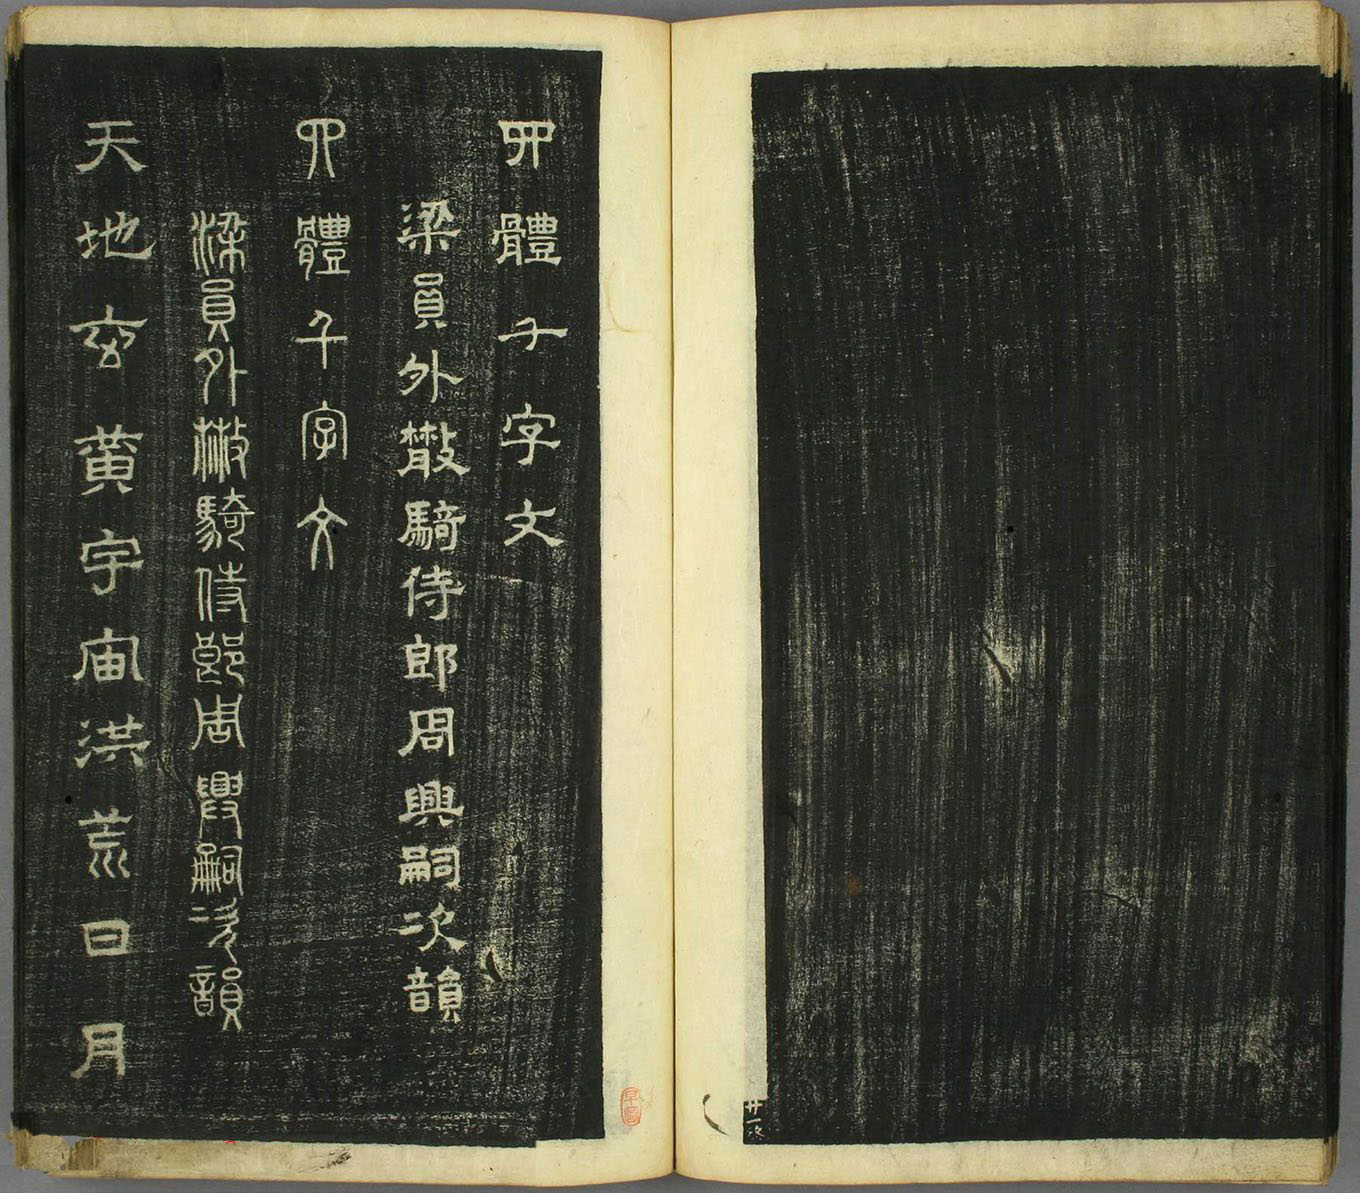 廿一次
四體千字文
梁員外散騎侍郎周興嗣次韻
四體千字文
梁員外散騎侍郎周興嗣次韻
天地玄黃宇宙洪荒日月